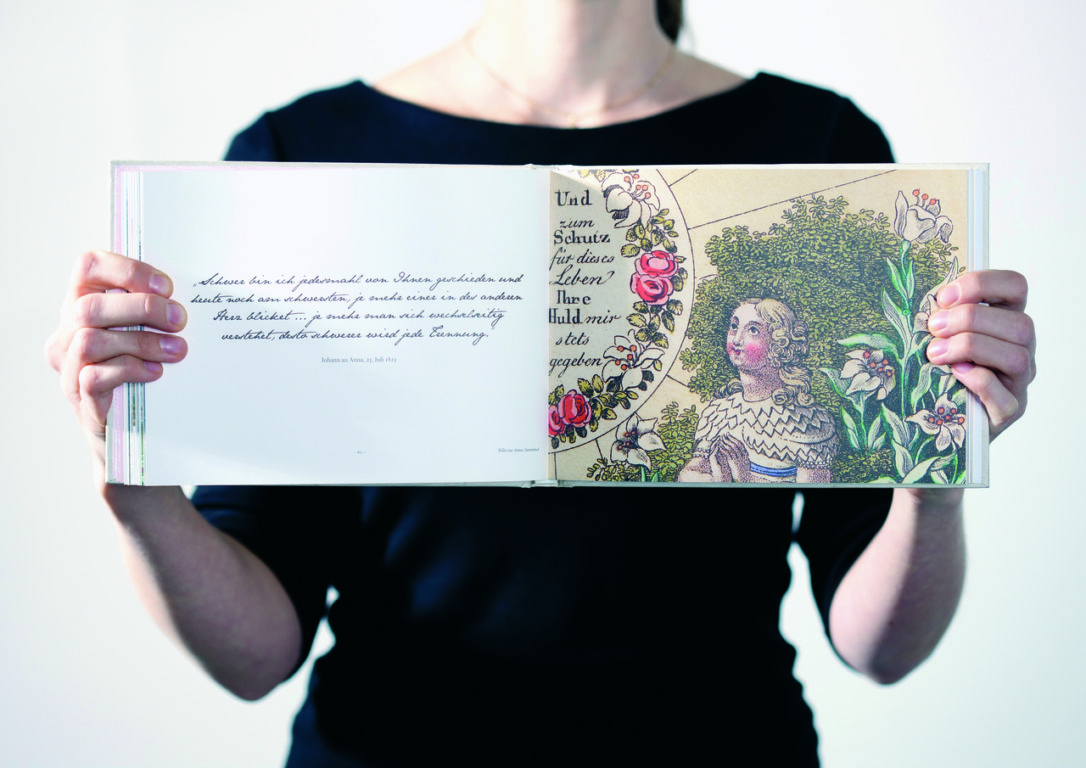 „Schwer bin ich jedesmahl von Ihnen geschieden und
heute noch am schwersten, je mehr einer in des anderen
Herz blicket ... je mehr man sich wechselseitig
verstehet, desto schwerer wird jede Trennung.
Johann an Anna, 23. Juli 1823
Und
zum
Schutz
für dieses
Leben
Ihre
Huld mir
stets
gegeben